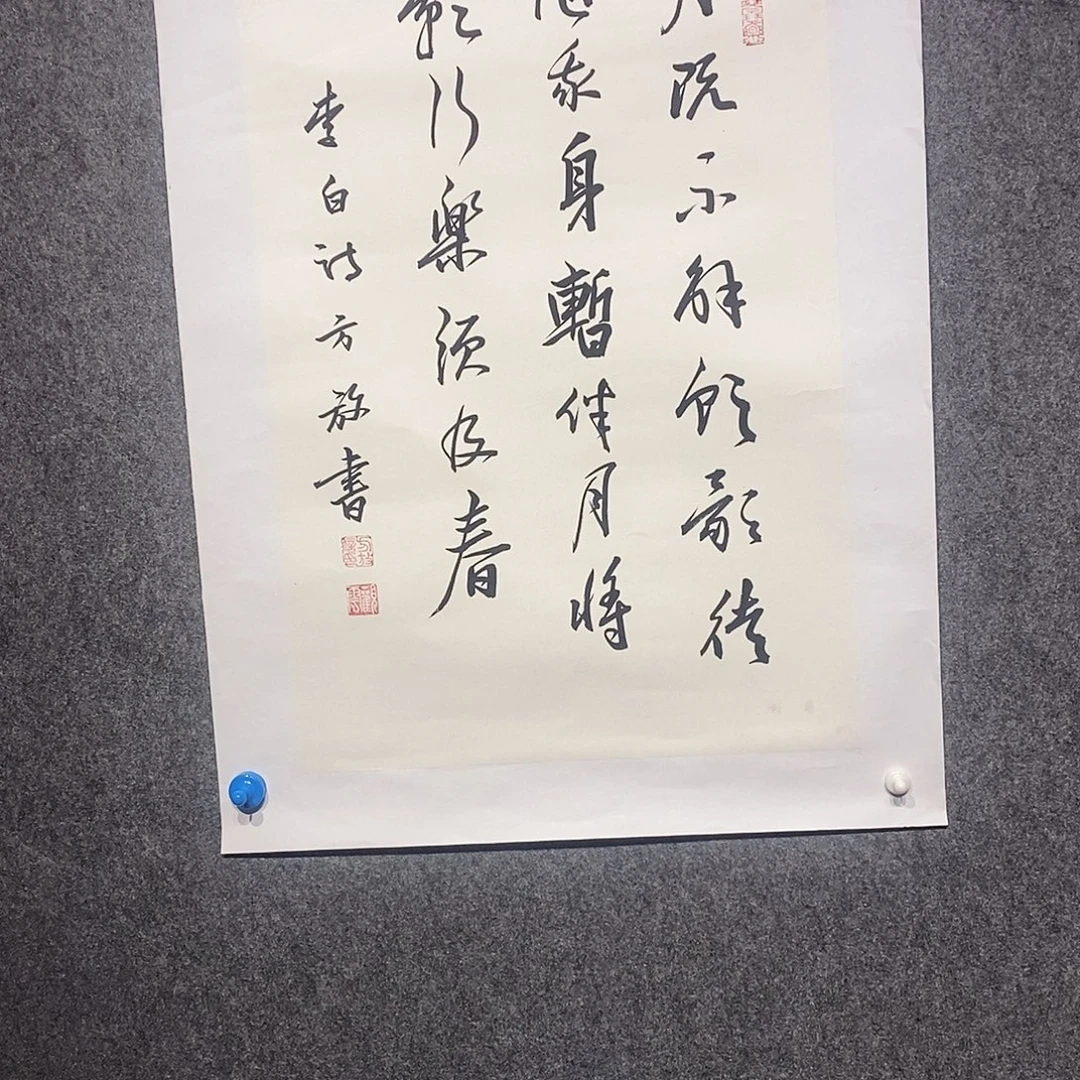 月既不解飲影徒
我身暫伴月將
影行樂須及春
李白詩方放書